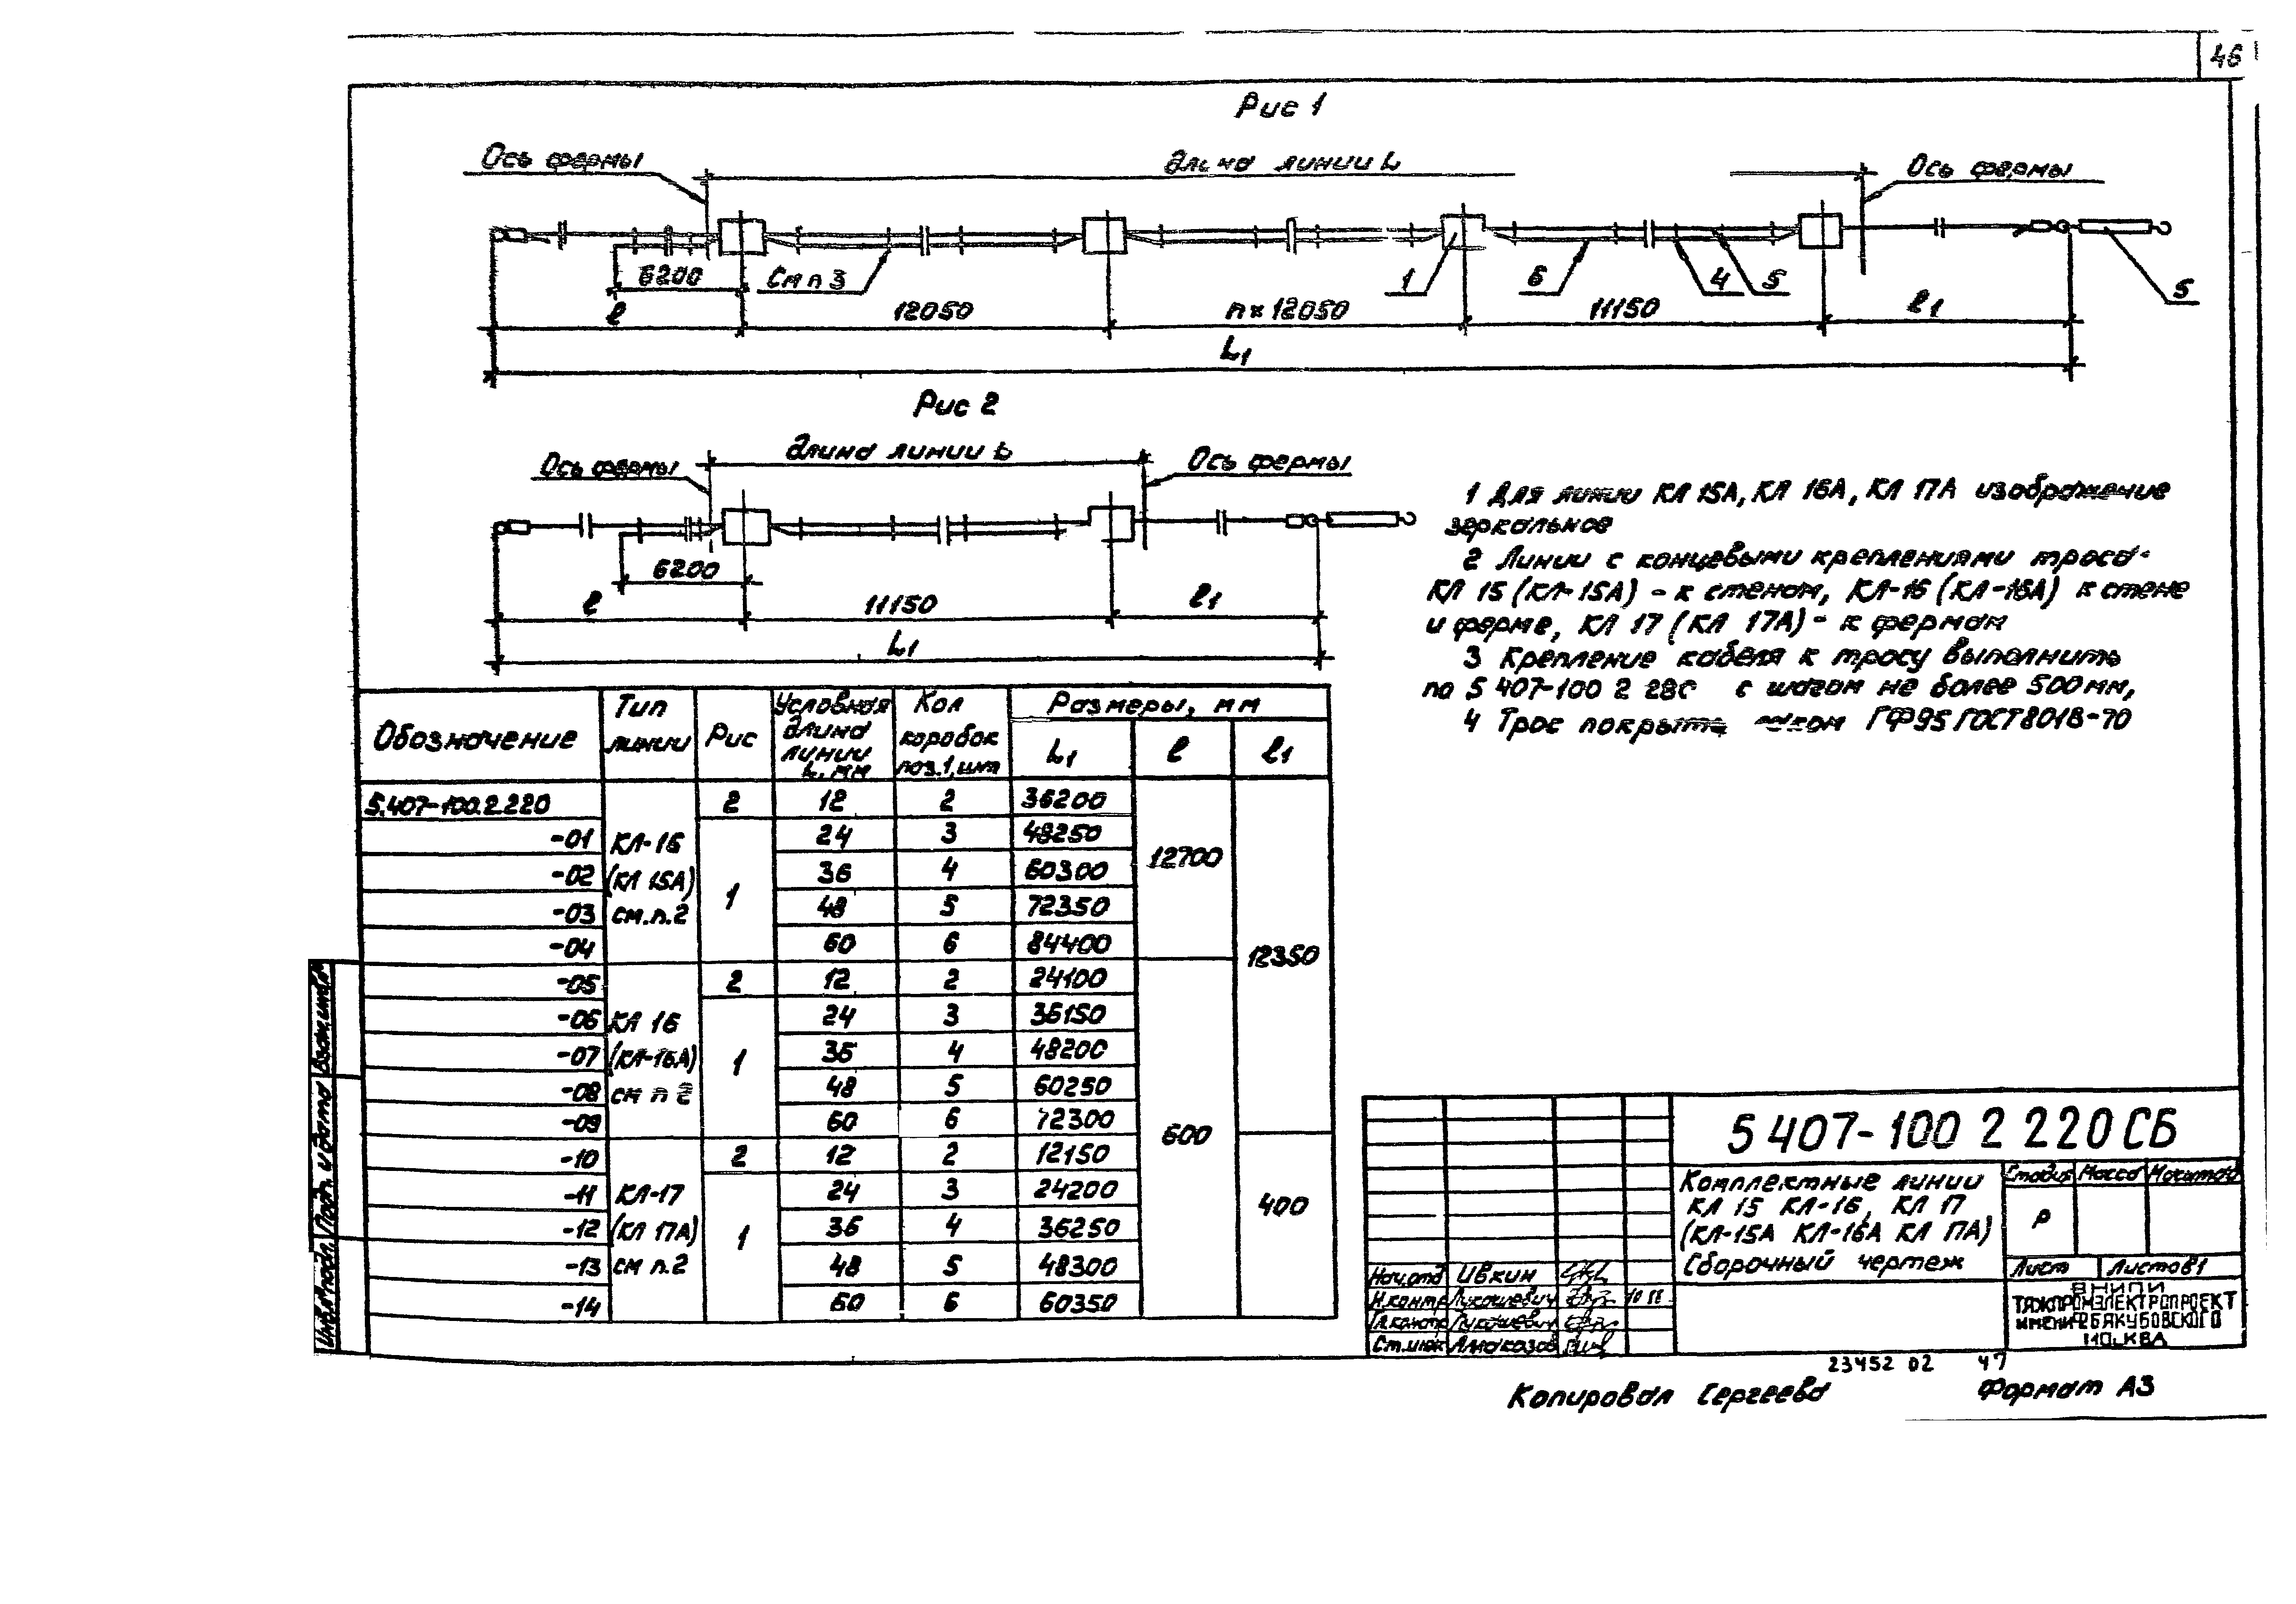 46
Рис 1
Ось фермы
Длина линии L
Ось фермы
6200
См п 3
1
6
4
5
5
l
12050
п х 12050
11150
l1
L1
Рис 2
Ось фермы
Длина линии L
Ось фермы
6200
l
11150
l1
L1
1 Для линии КЛ 15А, КЛ 16А, КЛ 17А изображение
зеркальное
2 Линии с концевыми креплениями троса-
КЛ 15 (КЛ-15А) - к стенам, КЛ-16 (КЛ-16А) к стене
и ферме, КЛ 17 (КЛ 17А) - к фермам
3 Крепление кабеля к тросу выполнить
по 5 407-100 2 28С с шагом не более 500 мм,
4 Трос покрыть лаком ГФ95 ГОСТ 8018-70
Обозначение Тип линии Рис Условная длина линии L, мм Кол коробок поз.1, шт Размеры, мм
L1 l l1
5.407-100.2.220 2 12 2 36200
-01 КЛ-15 24 3 48250
12700
-02 (КЛ 15А) 36 4 60300
1
-03 см.п.2 48 5 72350
-04 60 6 84400
12350
-05 2 12 2 24100
-06 КЛ 16 24 3 36150
-07 (КЛ-16А) 1 36 4 48200
-08 см п 2 48 5 60250
-09 60 6 72300
600
-10 2 12 2 12150
-11 КЛ-17 24 3 24200
400
-12 (КЛ 17А) 1 36 4 36250
-13 см п.2 48 5 48300
-14 60 6 60350
Взам.инв.№
Подп. и дата
Инв.№ подл.
5 407-100 2 220 СБ
Комплектные линии
КЛ 15 КЛ-16, КЛ 17
(КЛ-15А КЛ-16А КЛ 17А)
Сборочный чертеж
Стадия Масса Масштаб
Р
Лист Листов 1
ВНИПИ
ТЯЖПРОМЭЛЕКТРОПРОЕКТ
ИМЕНИ Ф Б ЯКУБОВСКОГО
МОСКВА
Нач.отд Ивкин
Н.контр Лукашевич
Гл.констр Лукашевич
Ст.инж Алмазов
23452 02 47
Копировал Сергеева Формат А3